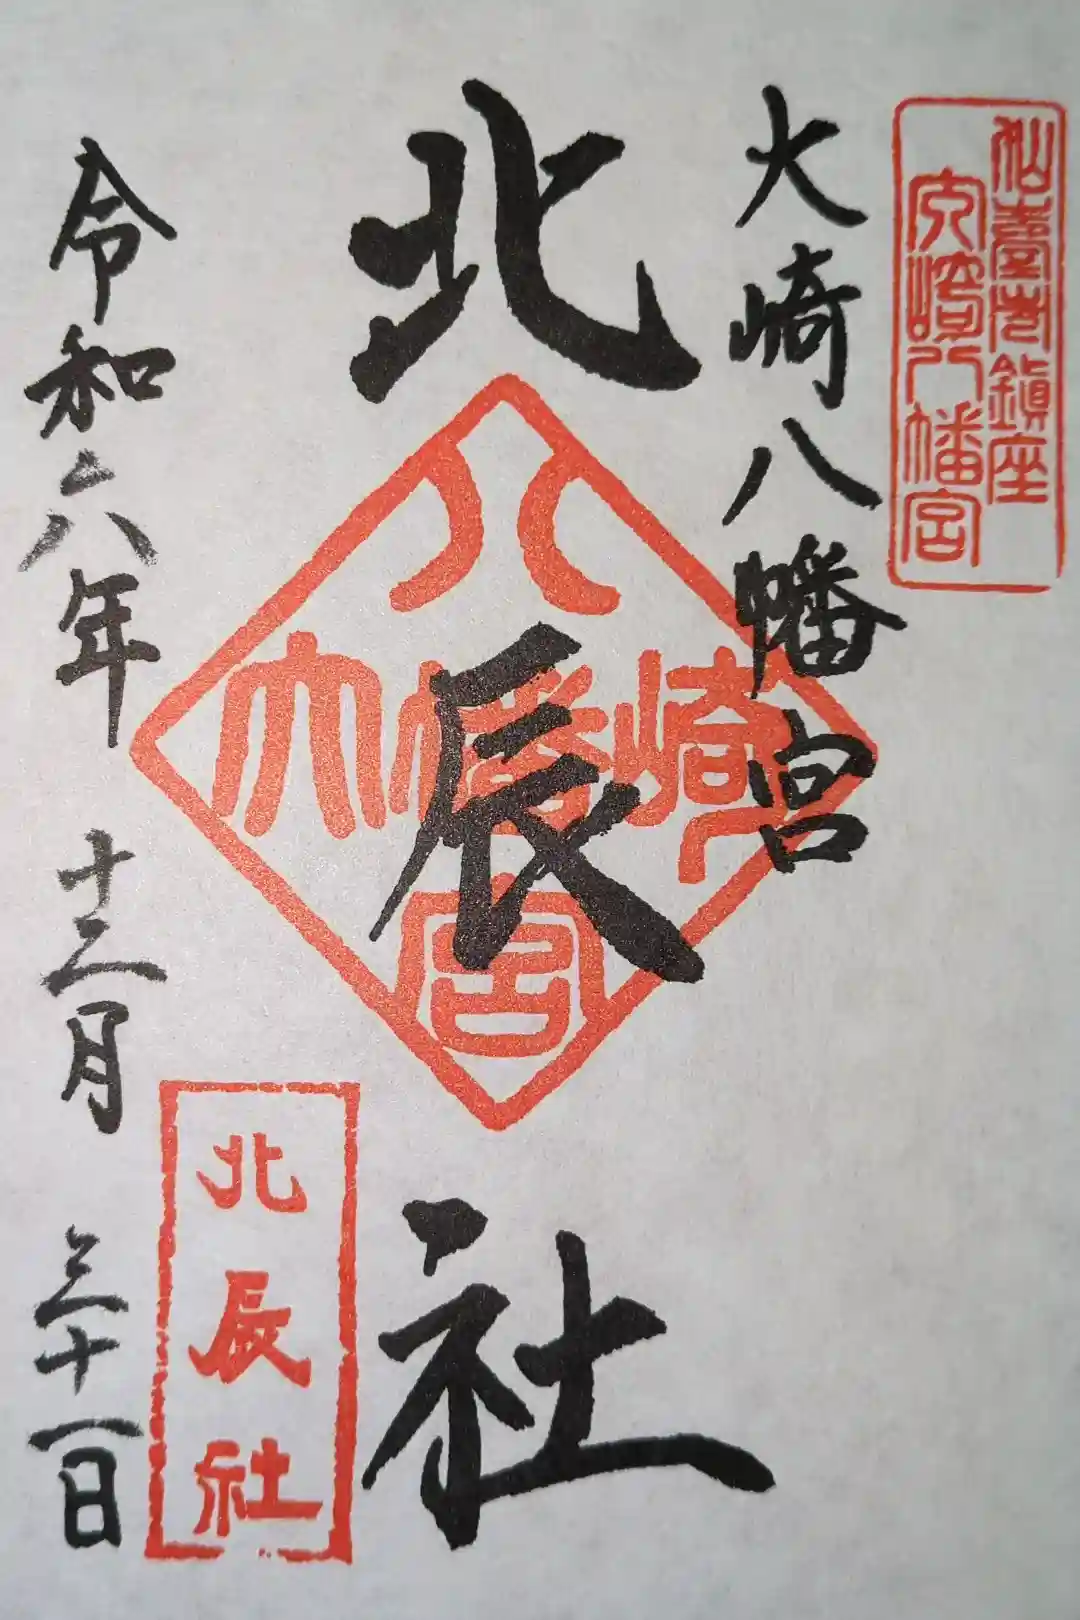 仙臺市鎮座
大崎八幡宮
大崎八幡宮
北辰社
大崎八幡宮
北辰社
令和六年 十二月 三十一日